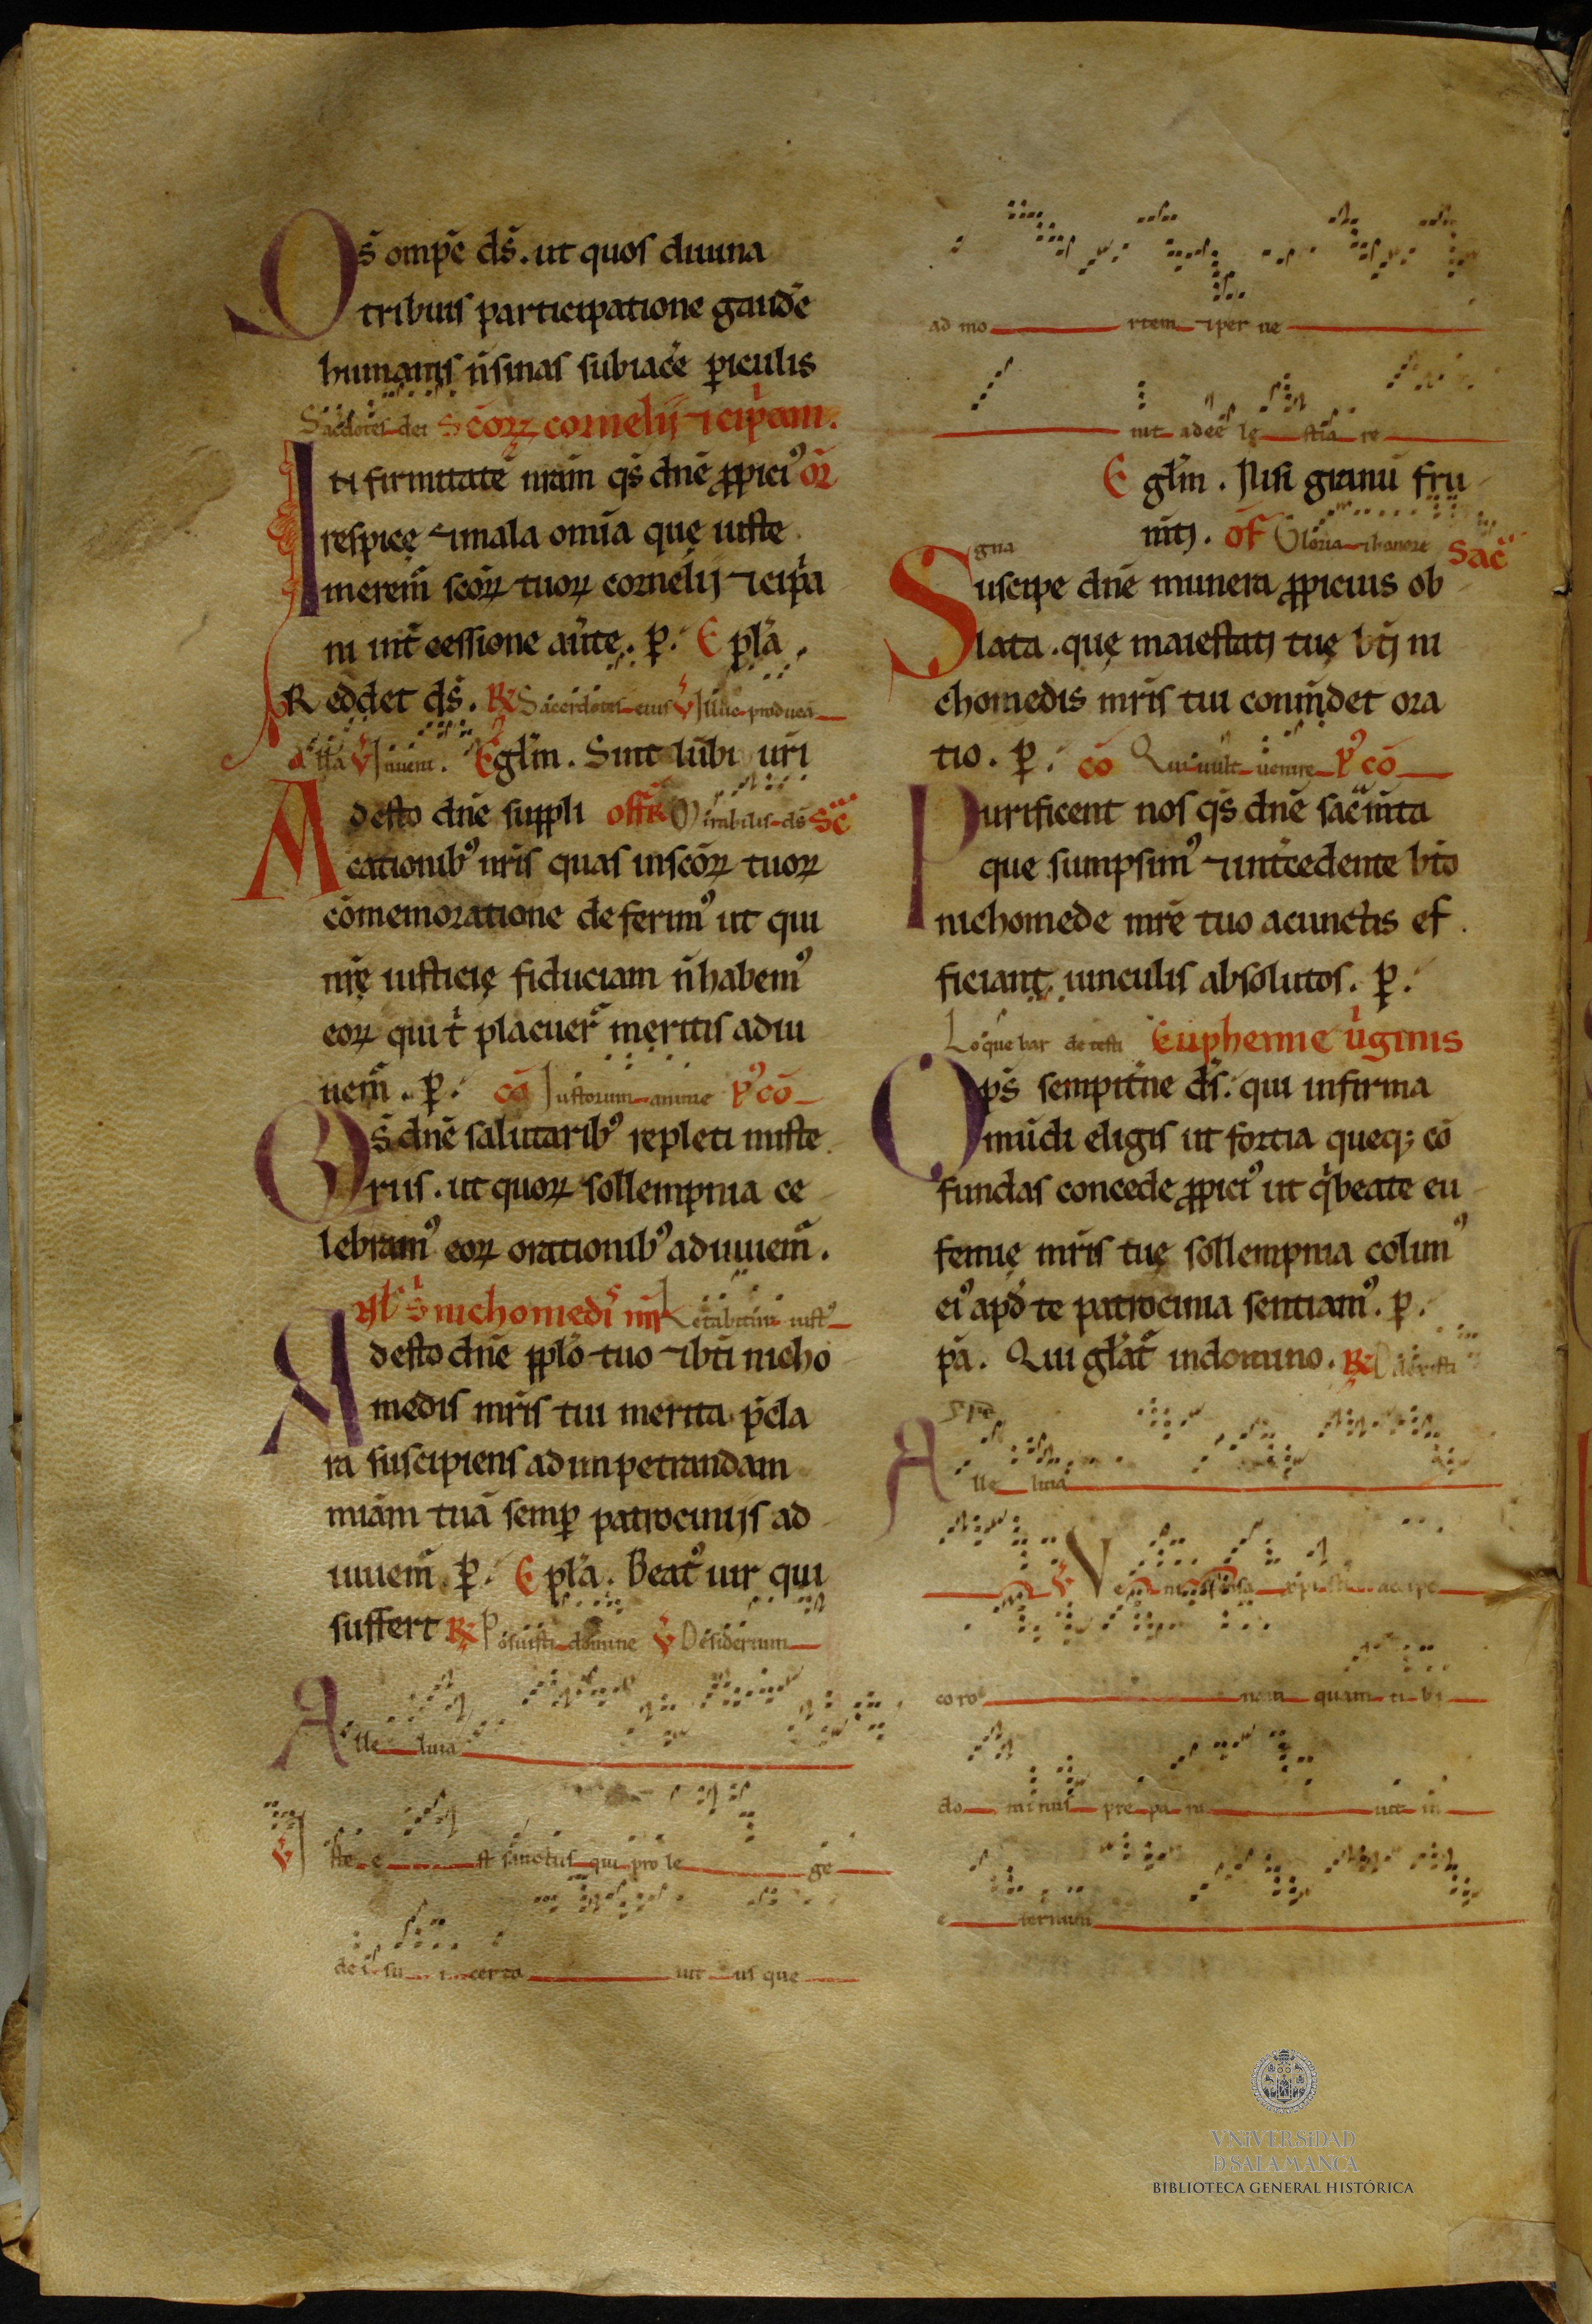 Qs̄ ompē ds̄. ut quos diuina
tribuis participatione gaudē
humanis ñ sinas subiacē ꝑiculis
Sacerdotes dei Scōꝝ cornelij ⁊ cipᵃani.
Infirmitatē nr̄am qs̄ dn̄e ꝓpici᷒ or̄
respice ⁊ mala om̄ia que iuste
merem̄ scōꝝ tuoꝝ cornelij ⁊ cipᵃa
ni int̄cessione aūte. ꝑ. E pl̄a.
Reddet ds̄. ℟ Sacerdotes eius ℣ Illuc producā
all̄a ℣ Inueni. Egl̄m. Sint lūbi ur̄i
Adesto dn̄e suppli off̄r Mirabilis ds̄ Sc̄
cationib᷒ nr̄is quas in scōꝝ tuoꝝ
cōmemoratione deferim᷒ ut qui
nr̄ę iusticię fiduciam ñ habem᷒
eoꝝ qui t̄ placuer̄ meritis adiu
uem̄. ꝑ. cō Iustorum anime p᷒ cō
Qs̄ dn̄e salutarib᷒ repleti miste
riis. ut quoꝝ sollempnia ce
lebram᷒ eoꝝ orationib᷒ adiuuem̄.
Nł s̄ nichomedi mr̄ Letabitur iust᷒
Adesto dn̄e ppl̄o tuo ⁊ bt̄i nicho
medis mr̄is tui merita p̄cla
ra suscipiens ad impetrandam
miām tuā semꝑ patrocinijs ad
iuuem̄ ꝑ. E pl̄a. Beat᷒ uir qui
suffert ℟ Posuisti domine ℣ Desiderium
Alle luia
℣ Iste e st sanctus qui pro le ge
dei su i certa uit us que
ad mo rtem ⁊ per ne
nit adee lg stia re
E gl̄m. Nisi granū fru
m̄tj. of Gloria ⁊ honore Sac̄
gna
Suscipe dn̄e munera ꝓpicius ob
lata. quę maiestatj tuę btj ni
chomedis mr̄is tui com̄det ora
tio. ꝑ. cō Qui uult uenire p᷒ cō
Purificent nos qs̄ dn̄e sac̄m̄ta
que sumpsim᷒ ⁊ int̄cedente bt̄o
nichomede mr̄e tuo a cunctis ef
ficiant uinculis absolutos. ꝑ.
Loquebar de testi Euphemie uͥginis
Omps̄ sempit̄ne ds̄. qui infirma
mūdi eligis ut fortia queq; cō
fundas concede ꝓpici᷒ ut q̄ beate eu
femię mr̄is tuę sollempnia colim᷒
ei᷒ apd̄ te patrocinia sentiam᷒. ꝑ.
pā. Qui gl̄at̄ in domino. ℟ Dilexisti
Alle luia
℣ Veni sponsa xp̄i accipe
coro nam quam ti bi
do minus pre pa ra uit in
e ternum
VNiVERSiDAD
D SALAMANCA
BIBLIOTECA GENERAL HISTÓRICA